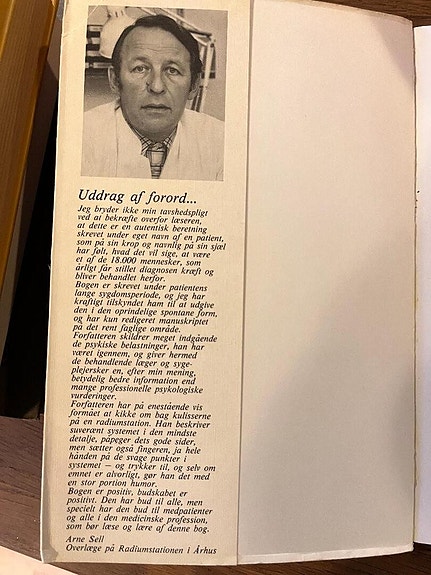 Uddrag af forord...
Jeg bryder ikke min tavshedspligt
ved at bekræfte overfor læseren,
at dette er en autentisk beretning
skrevet under eget navn af en patient,
som på sin krop og navnlig på sin sjæl
har følt, hvad det vil sige, at være
et af de 18.000 mennesker, som
årligt får stillet diagnosen kræft og
bliver behandlet herfor.
Bogen er skrevet under patientens
lange sygdomsperiode, og jeg har
kraftigt tilskyndet ham til at udgive
den i den oprindelige spontane form,
og har kun redigeret manuskriptet
på det rent faglige område.
Forfatteren skildrer meget indgående
de psykiske belastninger, han har
været igennem, og giver hermed
de behandlende læger og syge-
plejersker en, efter min mening,
betydelig bedre information end
mange professionelle psykologiske
vurderinger.
Forfatteren har på enestående vis
formået at kikke om bag kulisserne
på en radiumstation. Han beskriver
suverænt systemet i den mindste
detalje, påpeger dets gode sider,
men sætter også fingeren, ja hele
hånden på de svage punkter i
systemet – og trykker til, og selv om
emnet er alvorligt, gør han det med
en stor portion humor.
Bogen er positiv, budskabet er
positivt. Den har bud til alle, men
specielt har den bud til medpatienter
og alle i den medicinske profession,
som bør læse og lære af denne bog.
Arne Sell
Overlæge på Radiumstationen i Århus